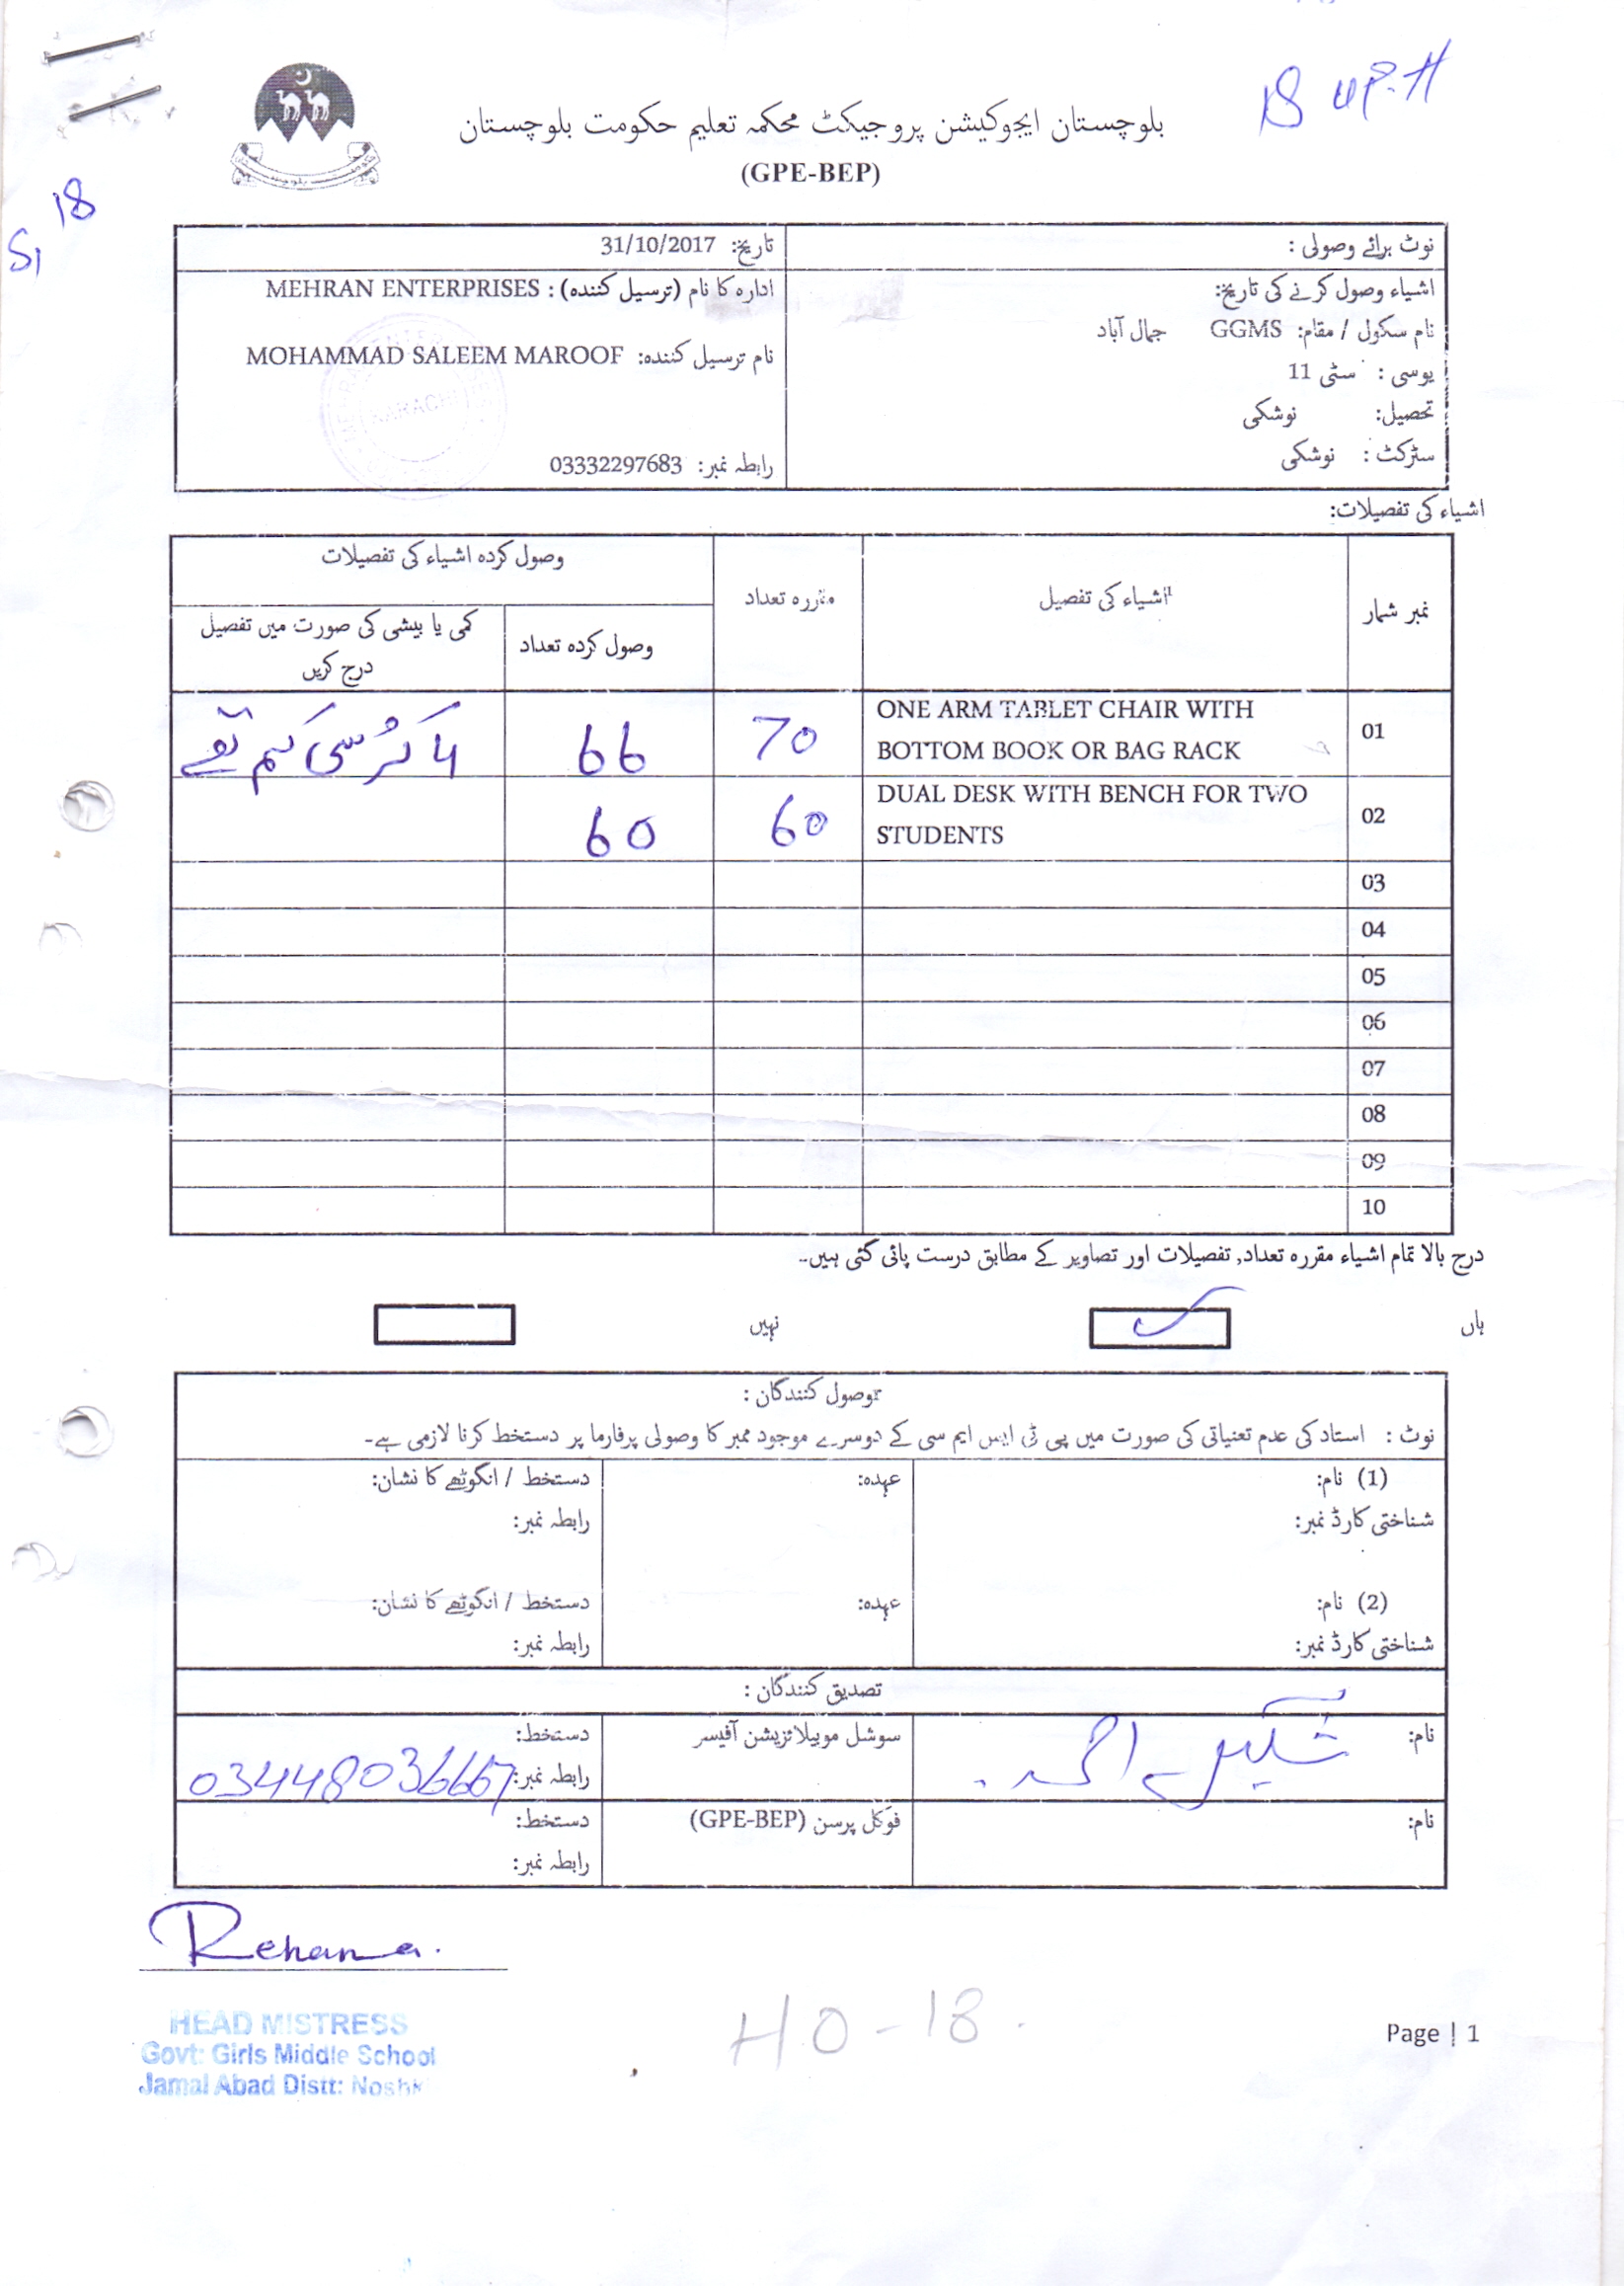 بلوچستان ایجوکیشن پروجیکٹ محکمہ تعلیم حکومت بلوچستان
(GPE-BEP)
18
نوٹ برائے وصولی :
تاریخ: 31/10/2017
اشیاء وصول کرنے کی تاریخ:
نام سکول / مقام: GGMS جمال آباد
یوسی : سٹی 11
تحصیل: نوشکی
سٹرکٹ : نوشکی
ادارہ کا نام (ترسیل کنندہ) : MEHRAN ENTERPRISES
نام ترسیل کنندہ: MOHAMMAD SALEEM MAROOF
KARACHI
رابطہ نمبر: 03332297683
اشیاء کی تفصیلات:
نمبر شمار
اشیاء کی تفصیل
مقررہ تعداد
وصول کردہ اشیاء کی تفصیلات
وصول کردہ تعداد
کمی یا بیشی کی صورت میں تفصیل
درج کریں
01 ONE ARM TABLET CHAIR WITH
BOTTOM BOOK OR BAG RACK 70 66 4 کرسی کم تھے
02 DUAL DESK WITH BENCH FOR TWO
STUDENTS 60 60
03
04
05
06
07
08
09
10
درج بالا تمام اشیاء مقررہ تعداد, تفصیلات اور تصاویر کے مطابق درست پائی گئی ہیں۔
ہاں نہیں
وصول کنندگان :
نوٹ : استاد کی عدم تعنیاتی کی صورت میں پی ٹی ایس ایم سی کے دوسرے موجود ممبر کا وصولی پرفارما پر دستخط کرنا لازمی ہے۔
(1) نام: عہدہ: دستخط / انگوٹھے کا نشان:
شناختی کارڈ نمبر: رابطہ نمبر:
(2) نام: عہدہ: دستخط / انگوٹھے کا نشان:
شناختی کارڈ نمبر: رابطہ نمبر:
تصدیق کنندگان :
نام: شکیل احمد سوشل موبیلائزیشن آفیسر دستخط:
رابطہ نمبر: 03448036667
نام: فوکل پرسن (GPE-BEP) دستخط:
رابطہ نمبر:
Rehana.
HEAD MISTRESS
Govt: Girls Middle School
Jamal Abad Distt: Noshk
HO-18
Page | 1